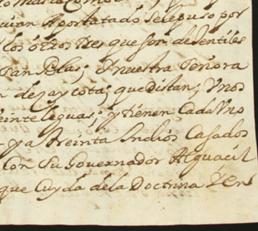 auian Apostatado se le puso por
los otros tres que son de Gentiles
San Blas; Nuestra Señora
de jaycota; que distan, Vnos
Veinte leguas; y tienen Cada Vno
ya treinta Indios Casados
Con Su Gouernador Alguacil
que Cuyda de la Doctrina Y en